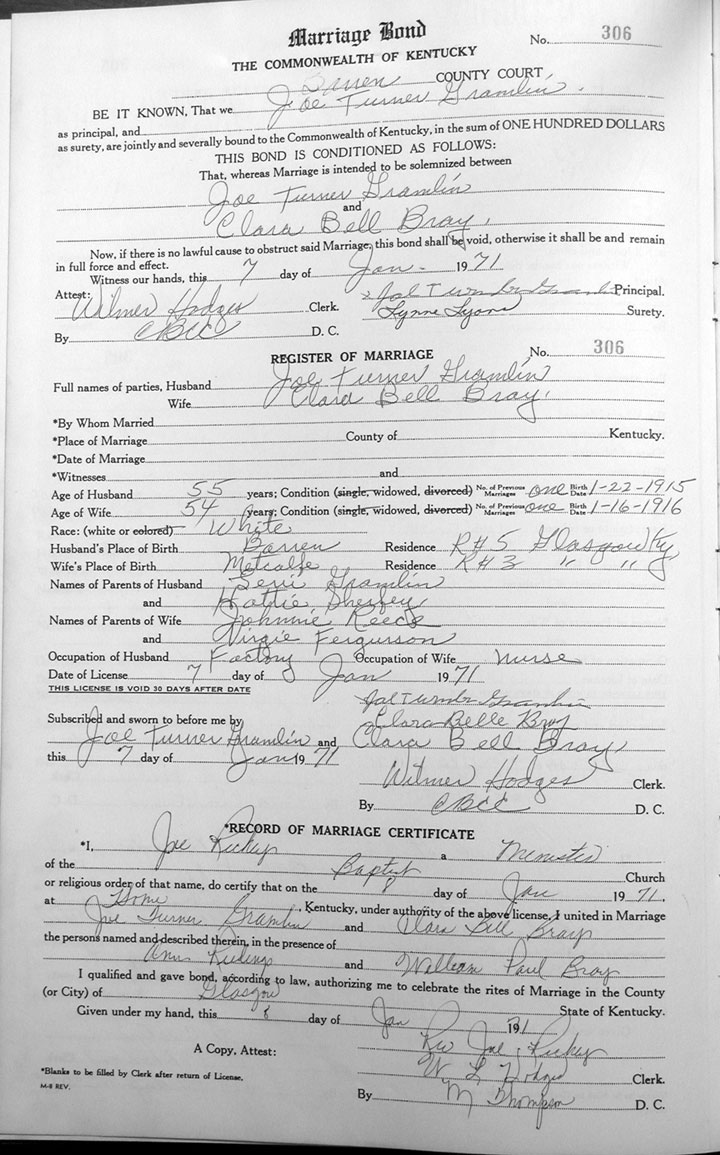 Marriage Bond
No. 306
THE COMMONWEALTH OF KENTUCKY
Barren COUNTY COURT
BE IT KNOWN, That we Joe Turner Gramlin.
as principal, and
as surety, are jointly and severally bound to the Commonwealth of Kentucky, in the sum of ONE HUNDRED DOLLARS
THIS BOND IS CONDITIONED AS FOLLOWS:
That, whereas Marriage is intended to be solemnized between
Joe Turner Gramlin
and
Clara Bell Bray.
Now, if there is no lawful cause to obstruct said Marriage, this bond shall be void, otherwise it shall be and remain
in full force and effect.
Witness our hands, this 7 day of Jan- 1971
Attest: Principal.
Wilmer Hodges Clerk. Lynne Lyons Surety.
By D. C.
REGISTER OF MARRIAGE No. 306
Full names of parties, Husband Joe Turner Gramlin
Wife Clara Bell Bray.
*By Whom Married
*Place of Marriage County of Kentucky.
*Date of Marriage
*Witnesses and
Age of Husband 55 years; Condition (single, widowed, divorced) No. of Previous Marriages one Birth Date 1-22-1915
Age of Wife 54 years; Condition (single, widowed, divorced) No. of Previous Marriages one Birth Date 1-16-1916
Race: (white or colored) White
Husband's Place of Birth Barren Residence R#5 Glasgow Ky
Wife's Place of Birth Metcalfe Residence R#3 " "
Names of Parents of Husband Gramlin
and Hattie
Names of Parents of Wife Johnnie Reece
and Virgie Fergurson
Occupation of Husband Factory Occupation of Wife nurse
Date of License 7 day of Jan 1971
THIS LICENSE IS VOID 30 DAYS AFTER DATE
Subscribed and sworn to before me by Clara Belle Bray
Joe Turner Gramlin and Clara Bell Bray,
this 7 day of Jan 1971
Wilmer Hodges Clerk.
By D. C.
*RECORD OF MARRIAGE CERTIFICATE
*I, Joe a Minister
of the Baptist Church
or religious order of that name, do certify that on the 8 day of Jan 1971,
at Home, Kentucky, under authority of the above license, I united in Marriage
Joe Turner Gramlin and Clara Bell Bray
the persons named and described therein, in the presence of
Ann and William Paul Bray
I qualified and gave bond, according to law, authorizing me to celebrate the rites of Marriage in the County
(or City) of Glasgow State of Kentucky.
Given under my hand, this 8 day of Jan 1971
Rev Joe
A Copy, Attest:
W L Hodges Clerk.
*Blanks to be filled by Clerk after return of License.
M-8 REV.
By M Thompson D. C.